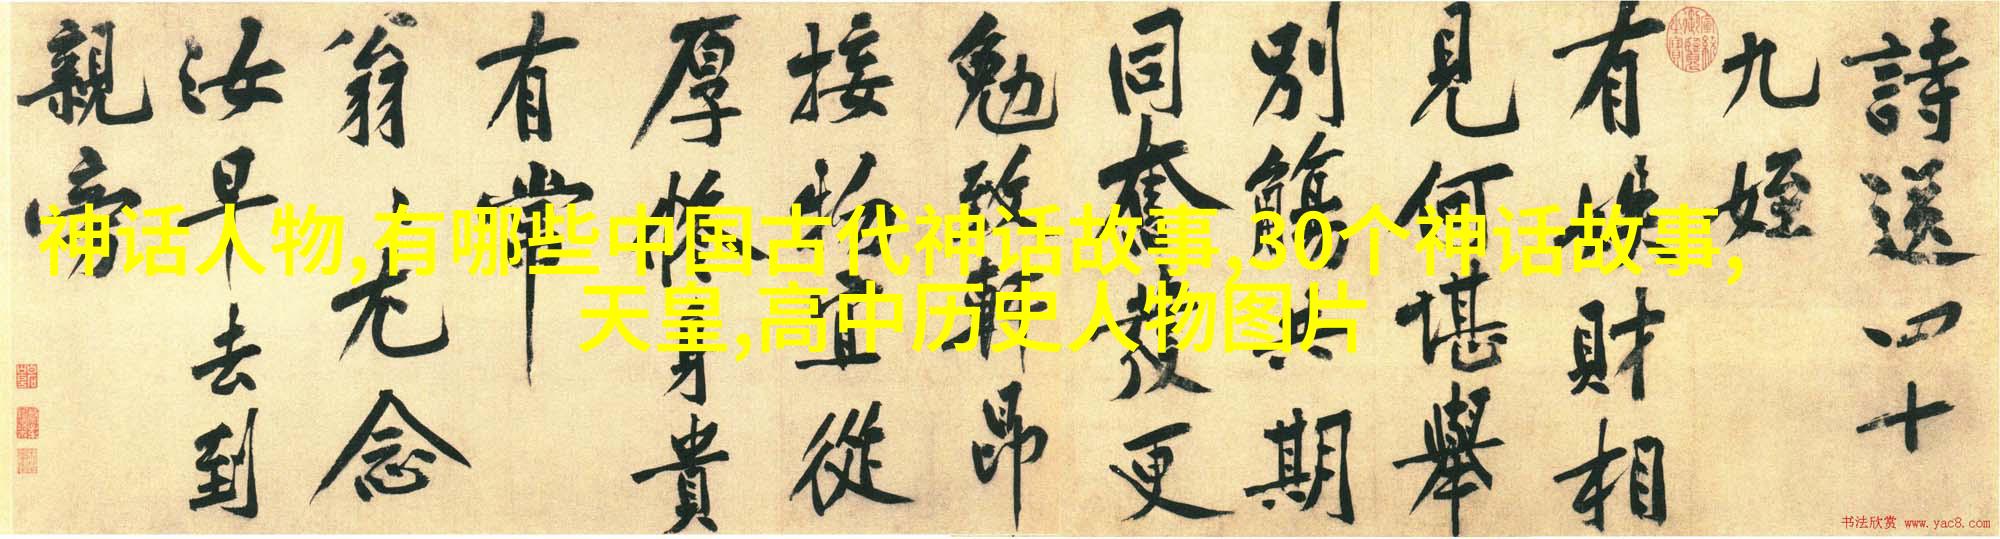 詩送四十
九姪
有財相
見何堪舉
別觴共期
同奮發更
勉致軒昂
接物宜從
厚脩身貴
有常
翁尤念
汝早去到
親旁
神话人物,有哪些中国古代神话故事,30个神话故事,
天皇,高中历史人物图片
书法欣赏 www.yac8.com